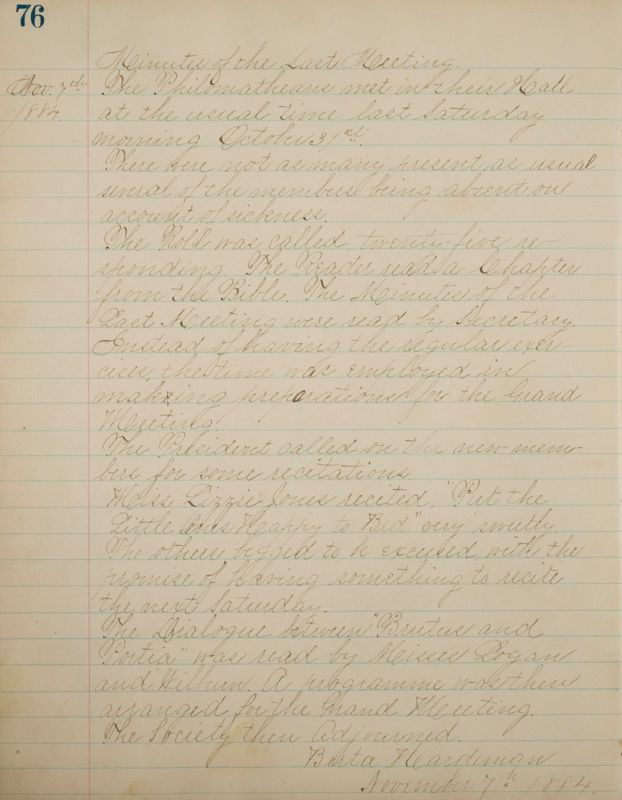 76
Minutes of the Last Meeting.
Nov. 7th
1884.
The Philomatheans met in their Hall
at the usual time last Saturday
morning October 31st.
There were not as many present as usual
several of the members being absent on
account of sickness.
The Roll was called, twenty-five re-
sponding. The Reader read a Chapter
from the Bible. The Minutes of the
Last Meeting were read by Secretary.
Instead of having the regular exer-
cises, the time was employed in
making preperations for the Grand
Meeting.
The President called on the new mem-
bers for some recitations.
Miss Lizzie Jones recited, "Put the
Little Ones Happy to Bed" very sweetly.
The others begged to be excused with the
promise of having something to recite
the next Saturday.
The Dialogue between "Brutus and
Portia" was read by Misses Logan
and Hilburn. A programme was then
arranged for the Grand Meeting.
The Society then Adjourned.
Berta Hardeman
November 7th 1884.